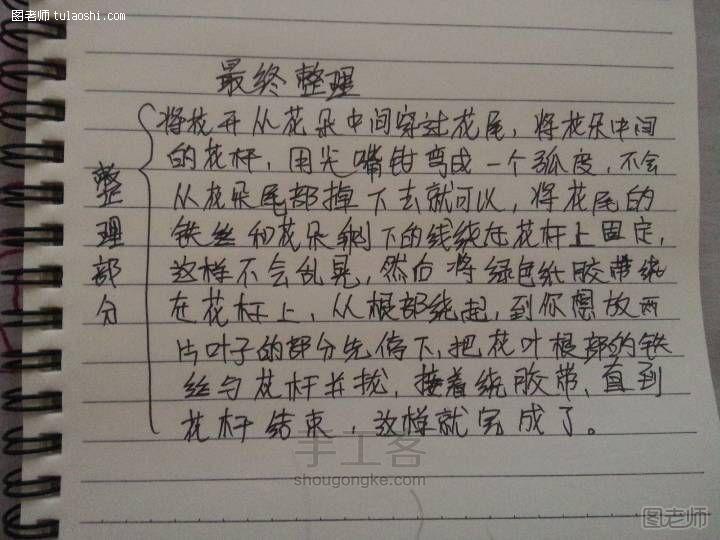 图老师 tulaoshi.com
最终整理
整理部分
将花干从花朵中间穿过花尾，将花朵中间
的花杆，用尖嘴钳弯成一个弧度，不会
从花朵尾部掉下去就可以，将花尾的
铁丝和花朵剩下的线绕在花杆上固定，
这样不会乱晃，然后将绿色纸胶带绕
在花杆上，从根部绕起，到你想放两
片叶子的部分先停下，把花叶根部的铁
丝与花杆并拢，接着绕胶带，直到
花杆结束，这样就完成了。
手工客
shougongke.com
图老师